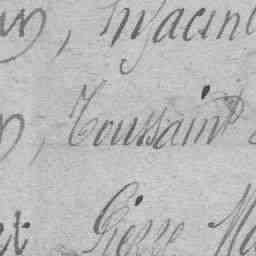 , hyacin
, Toussaint
et Pierre Ma